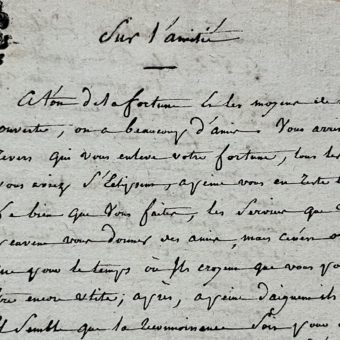 Sur l'amitié
A t'on de la fortune & les moyens de
ouverte, on a beaucoup d'amis. Vous arrive
revers qui vous enleve votre fortune, tous les
vous aviez S'Eclipsent, a peine vous en reste
Le bien que vous faites, les Services que
peuvent vous donner des amis, mais
que pour le temps où Ils croyent que vous
être encore utile; après, a peine daignent ils
Il Semble que la reconnoissance Soit pour